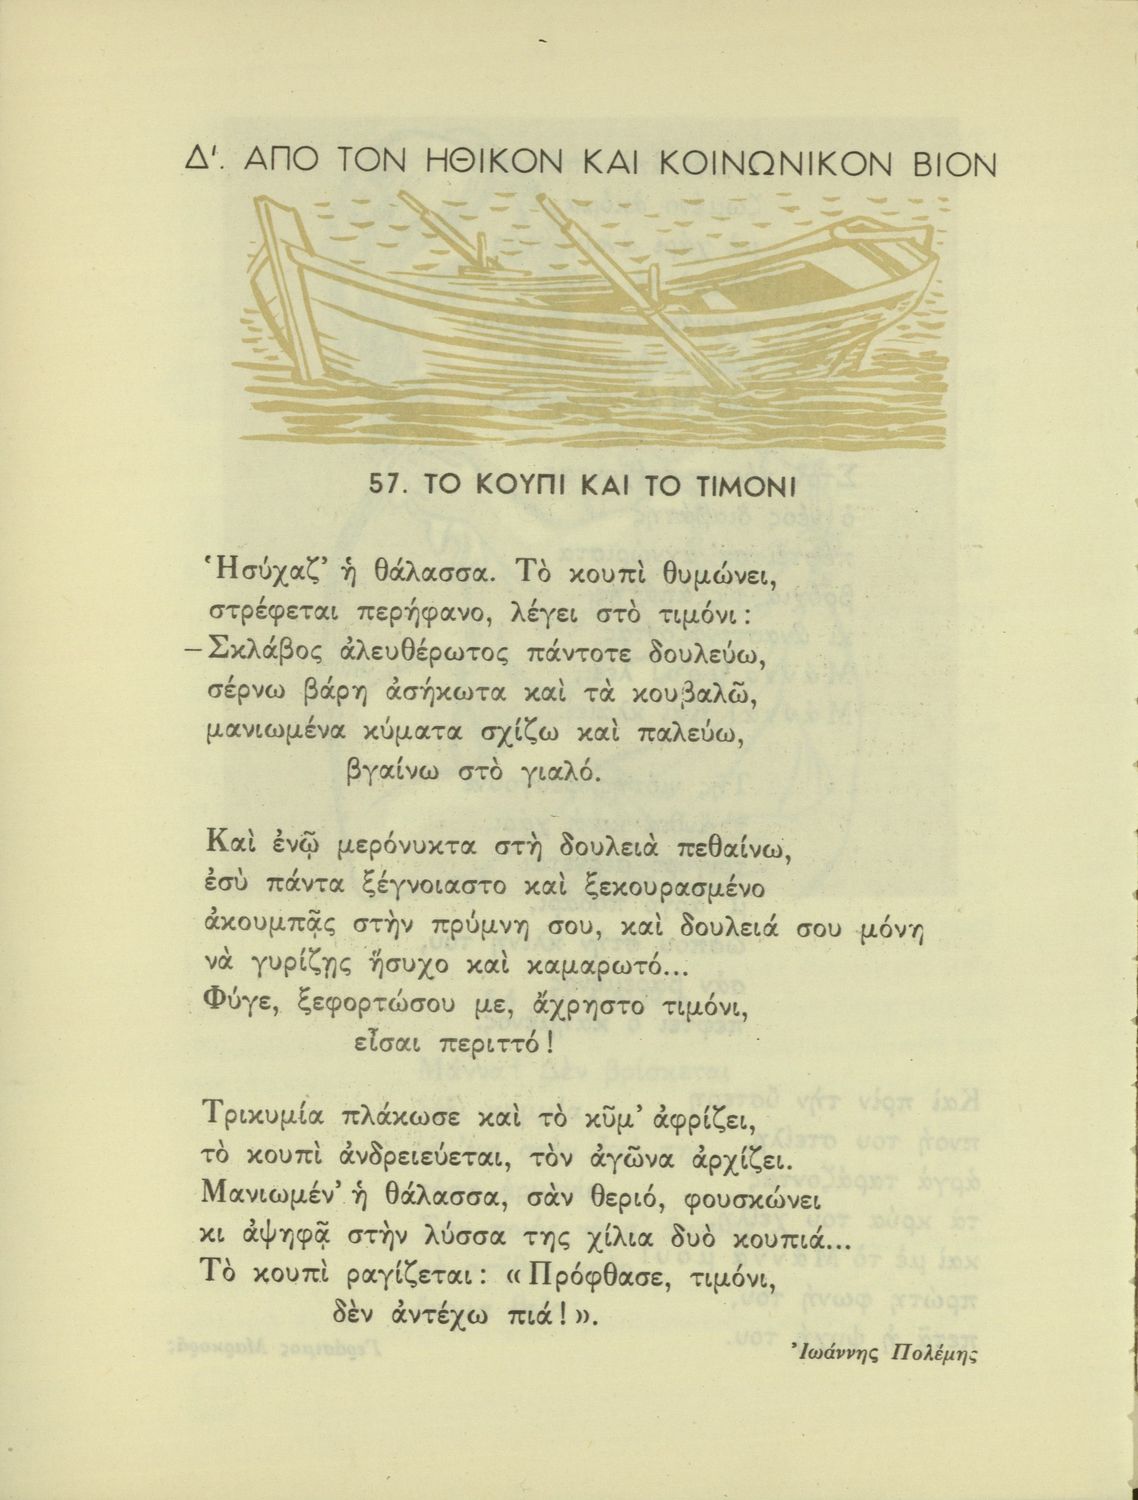 Δ'. ΑΠΟ ΤΟΝ ΗΘΙΚΟΝ ΚΑΙ ΚΟΙΝΩΝΙΚΟΝ ΒΙΟΝ
57. ΤΟ ΚΟΥΠΙ ΚΑΙ ΤΟ ΤΙΜΟΝΙ
Ἡσύχαζ’ ἡ θάλασσα. Τὸ κουπὶ θυμώνει,
στρέφεται περήφανο, λέγει στὸ τιμόνι :
—Σκλάβος ἀλευθέρωτος πάντοτε δουλεύω,
σέρνω βάρη ἀσήκωτα καὶ τὰ κουβαλῶ,
μανιωμένα κύματα σχίζω καὶ παλεύω,
βγαίνω στὸ γιαλό.
Καὶ ἐνῷ μερόνυκτα στὴ δουλειὰ πεθαίνω,
ἐσὺ πάντα ξέγνοιαστο καὶ ξεκουρασμένο
ἀκουμπᾷς στὴν πρύμνη σου, καὶ δουλειά σου μόνη
νὰ γυρίζῃς ἥσυχο καὶ καμαρωτό...
Φύγε, ξεφορτώσου με, ἄχρηστο τιμόνι,
εἶσαι περιττό !
Τρικυμία πλάκωσε καὶ τὸ κῦμ’ ἀφρίζει,
τὸ κουπὶ ἀνδρειεύεται, τὸν ἀγῶνα ἀρχίζει.
Μανιωμέν’ ἡ θάλασσα, σὰν θεριό, φουσκώνει
κι ἀψηφᾷ στὴν λύσσα της χίλια δυὸ κουπιά...
Τὸ κουπὶ ραγίζεται : «Πρόφθασε, τιμόνι,
δὲν ἀντέχω πιά ! ».
Ἰωάννης Πολέμης